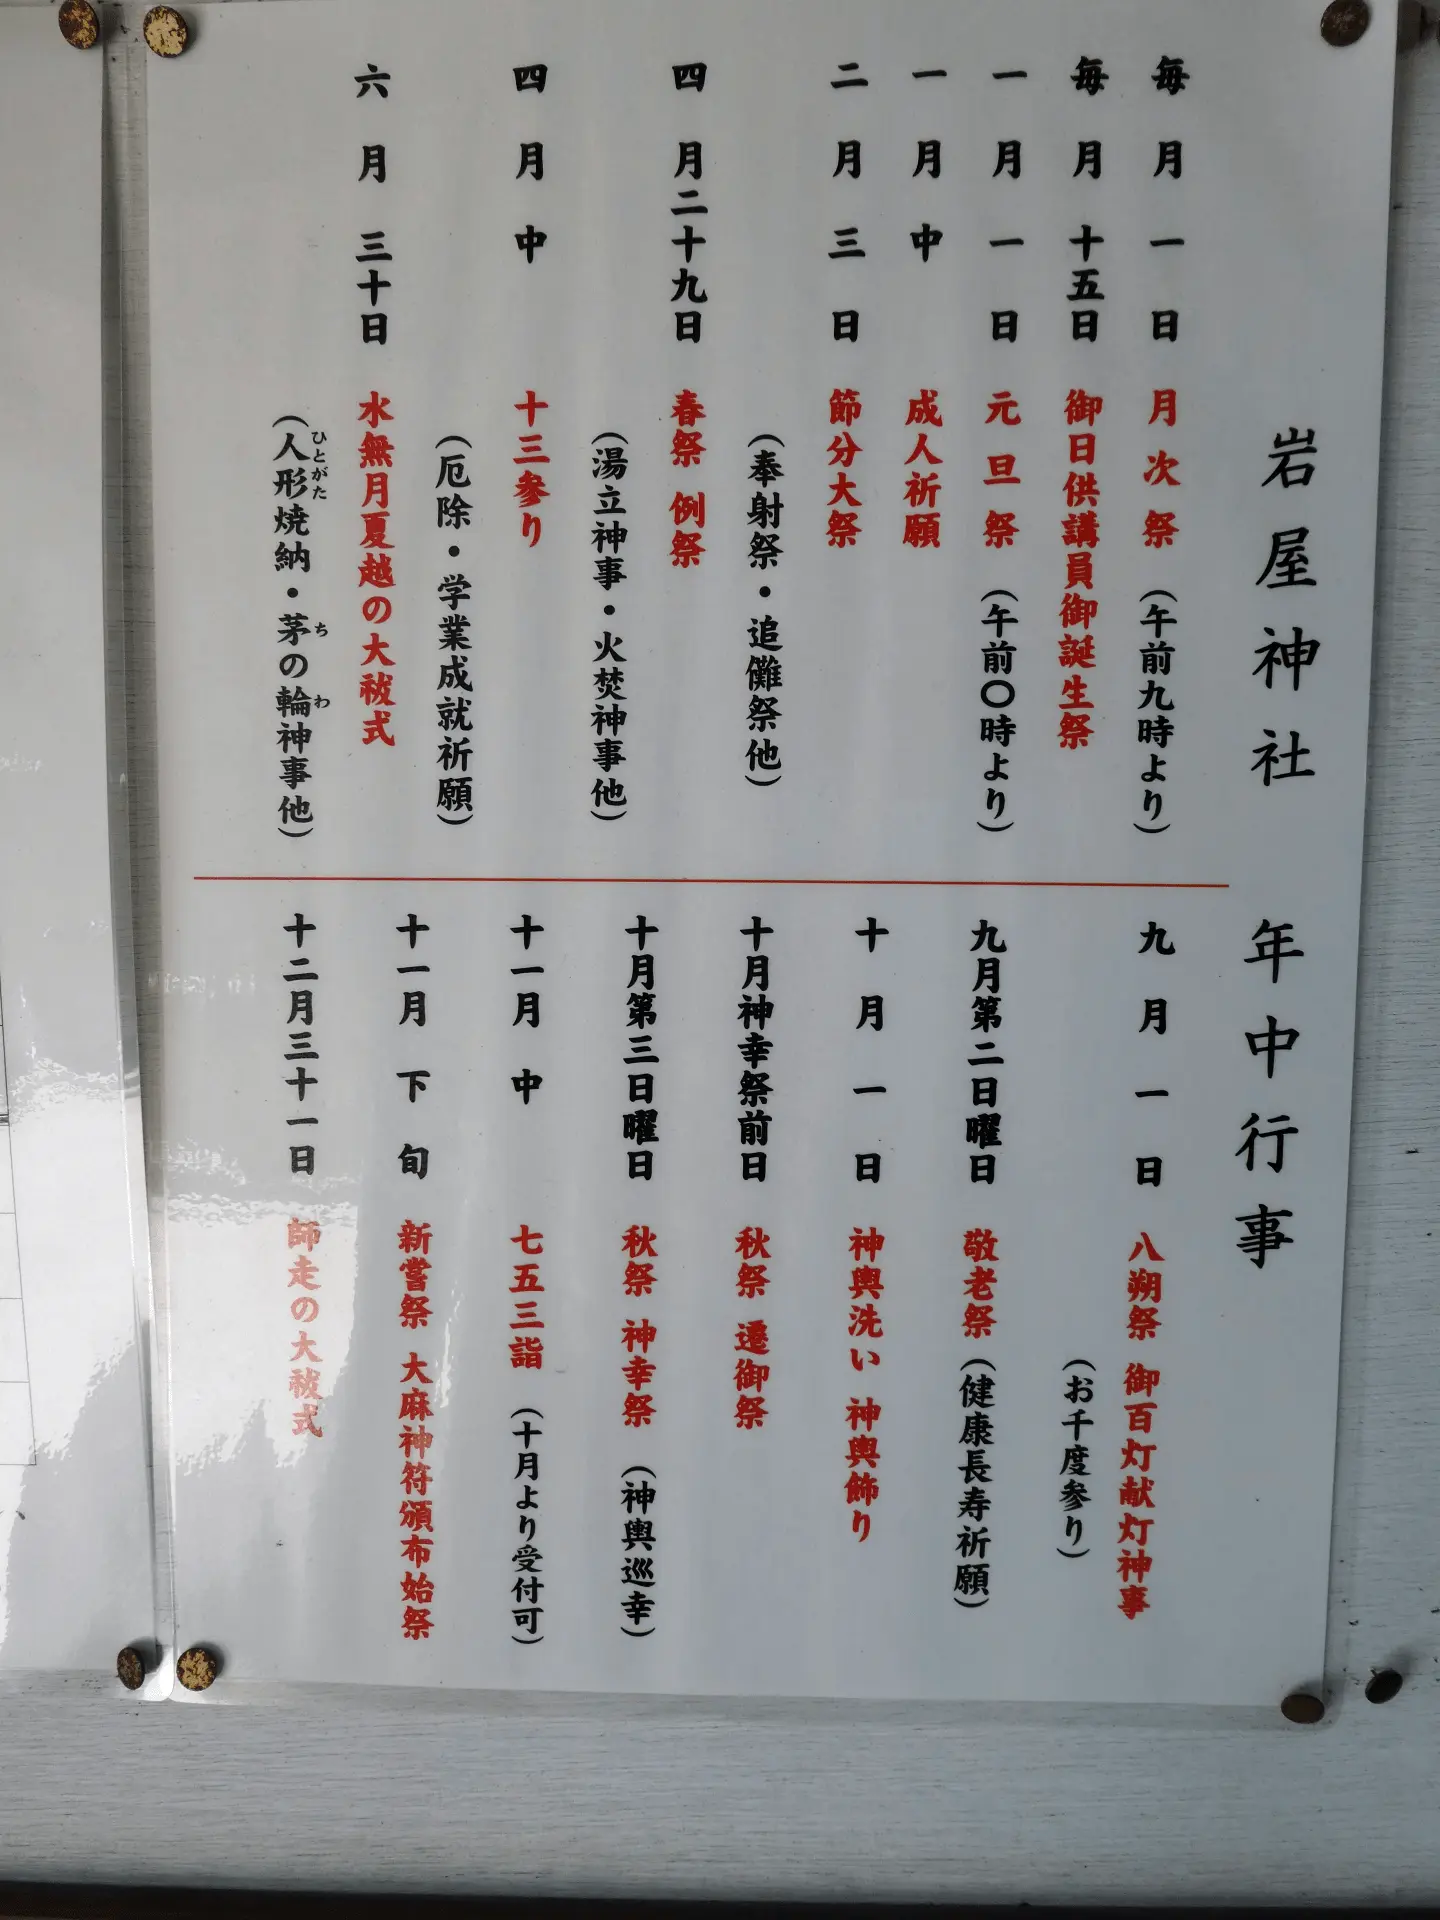 岩屋神社 年中行事
毎月一日 月次祭（午前九時より）
毎月十五日 御日供講員御誕生祭
一月一日 元旦祭（午前〇時より）
一月中 成人祈願
二月三日 節分大祭
（奉射祭・追儺祭他）
四月二十九日 春祭 例祭
（湯立神事・火焚神事他）
四月中 十三参り
（厄除・学業成就祈願）
六月三十日 水無月夏越の大祓式
（人形焼納・茅の輪神事他）
ひとがた ち わ
九月一日 八朔祭 御百灯献灯神事
（お千度参り）
九月第二日曜日 敬老祭（健康長寿祈願）
十月一日 神輿洗い 神輿飾り
十月神幸祭前日 秋祭 遷御祭
十月第三日曜日 秋祭 神幸祭（神輿巡幸）
十一月中 七五三詣（十月より受付可）
十一月下旬 新嘗祭 大麻神符頒布始祭
十二月三十一日 師走の大祓式